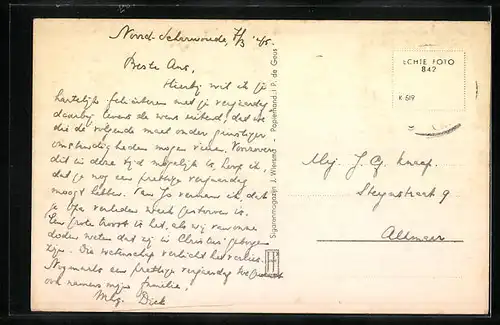 Noord-Scharwoude, 7/3 '45.
Beste Ans,
Hierbij wil ik je
hartelijk feliciteren met je verjaardag
daarbij tevens de wens uitend, dat we
die de volgende maal onder gunstiger
omstandigheden mogen vieren. Voorzover
dit in deze tijd mogelijk is, hoop ik,
dat je nog een prettige verjaardag
moogt hebben. Van Jo vernam ik, dat
je opa verleden week gestorven is.
Een grote troost is het, als wij van onze
doden weten dat zij in Christus geborgen
zijn. Die wetenschap verlicht het verlies.
Nogmaals een prettige verjaardag toegewenst
ook namens mijn familie,
Mvg. Dick
Sigarenmagazijn J. Wiersma - Papierhand. i P. de Geus
ECHTE FOTO
842
K 619
Mej. J. G. Knaap.
Steynstraat 9
Alkmaar